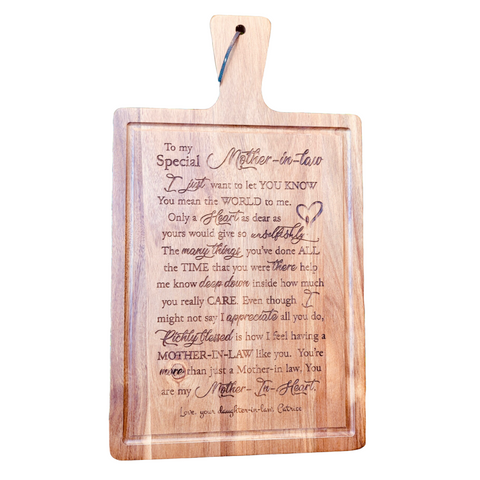 To my
Special Mother-in-law
I just want to let YOU KNOW
You mean the WORLD to me.
Only a Heart as dear as
yours would give so unselfishly.
The many things you've done ALL
the TIME that you were there help
me know deep down inside how much
you really CARE. Even though I
might not say I appreciate all you do,
Richly blessed is how I feel having a
MOTHER-IN-LAW like you. You're
more than just a Mother-in law. You
are my Mother-In-Heart.
Love your daughter-in-law, Catrice